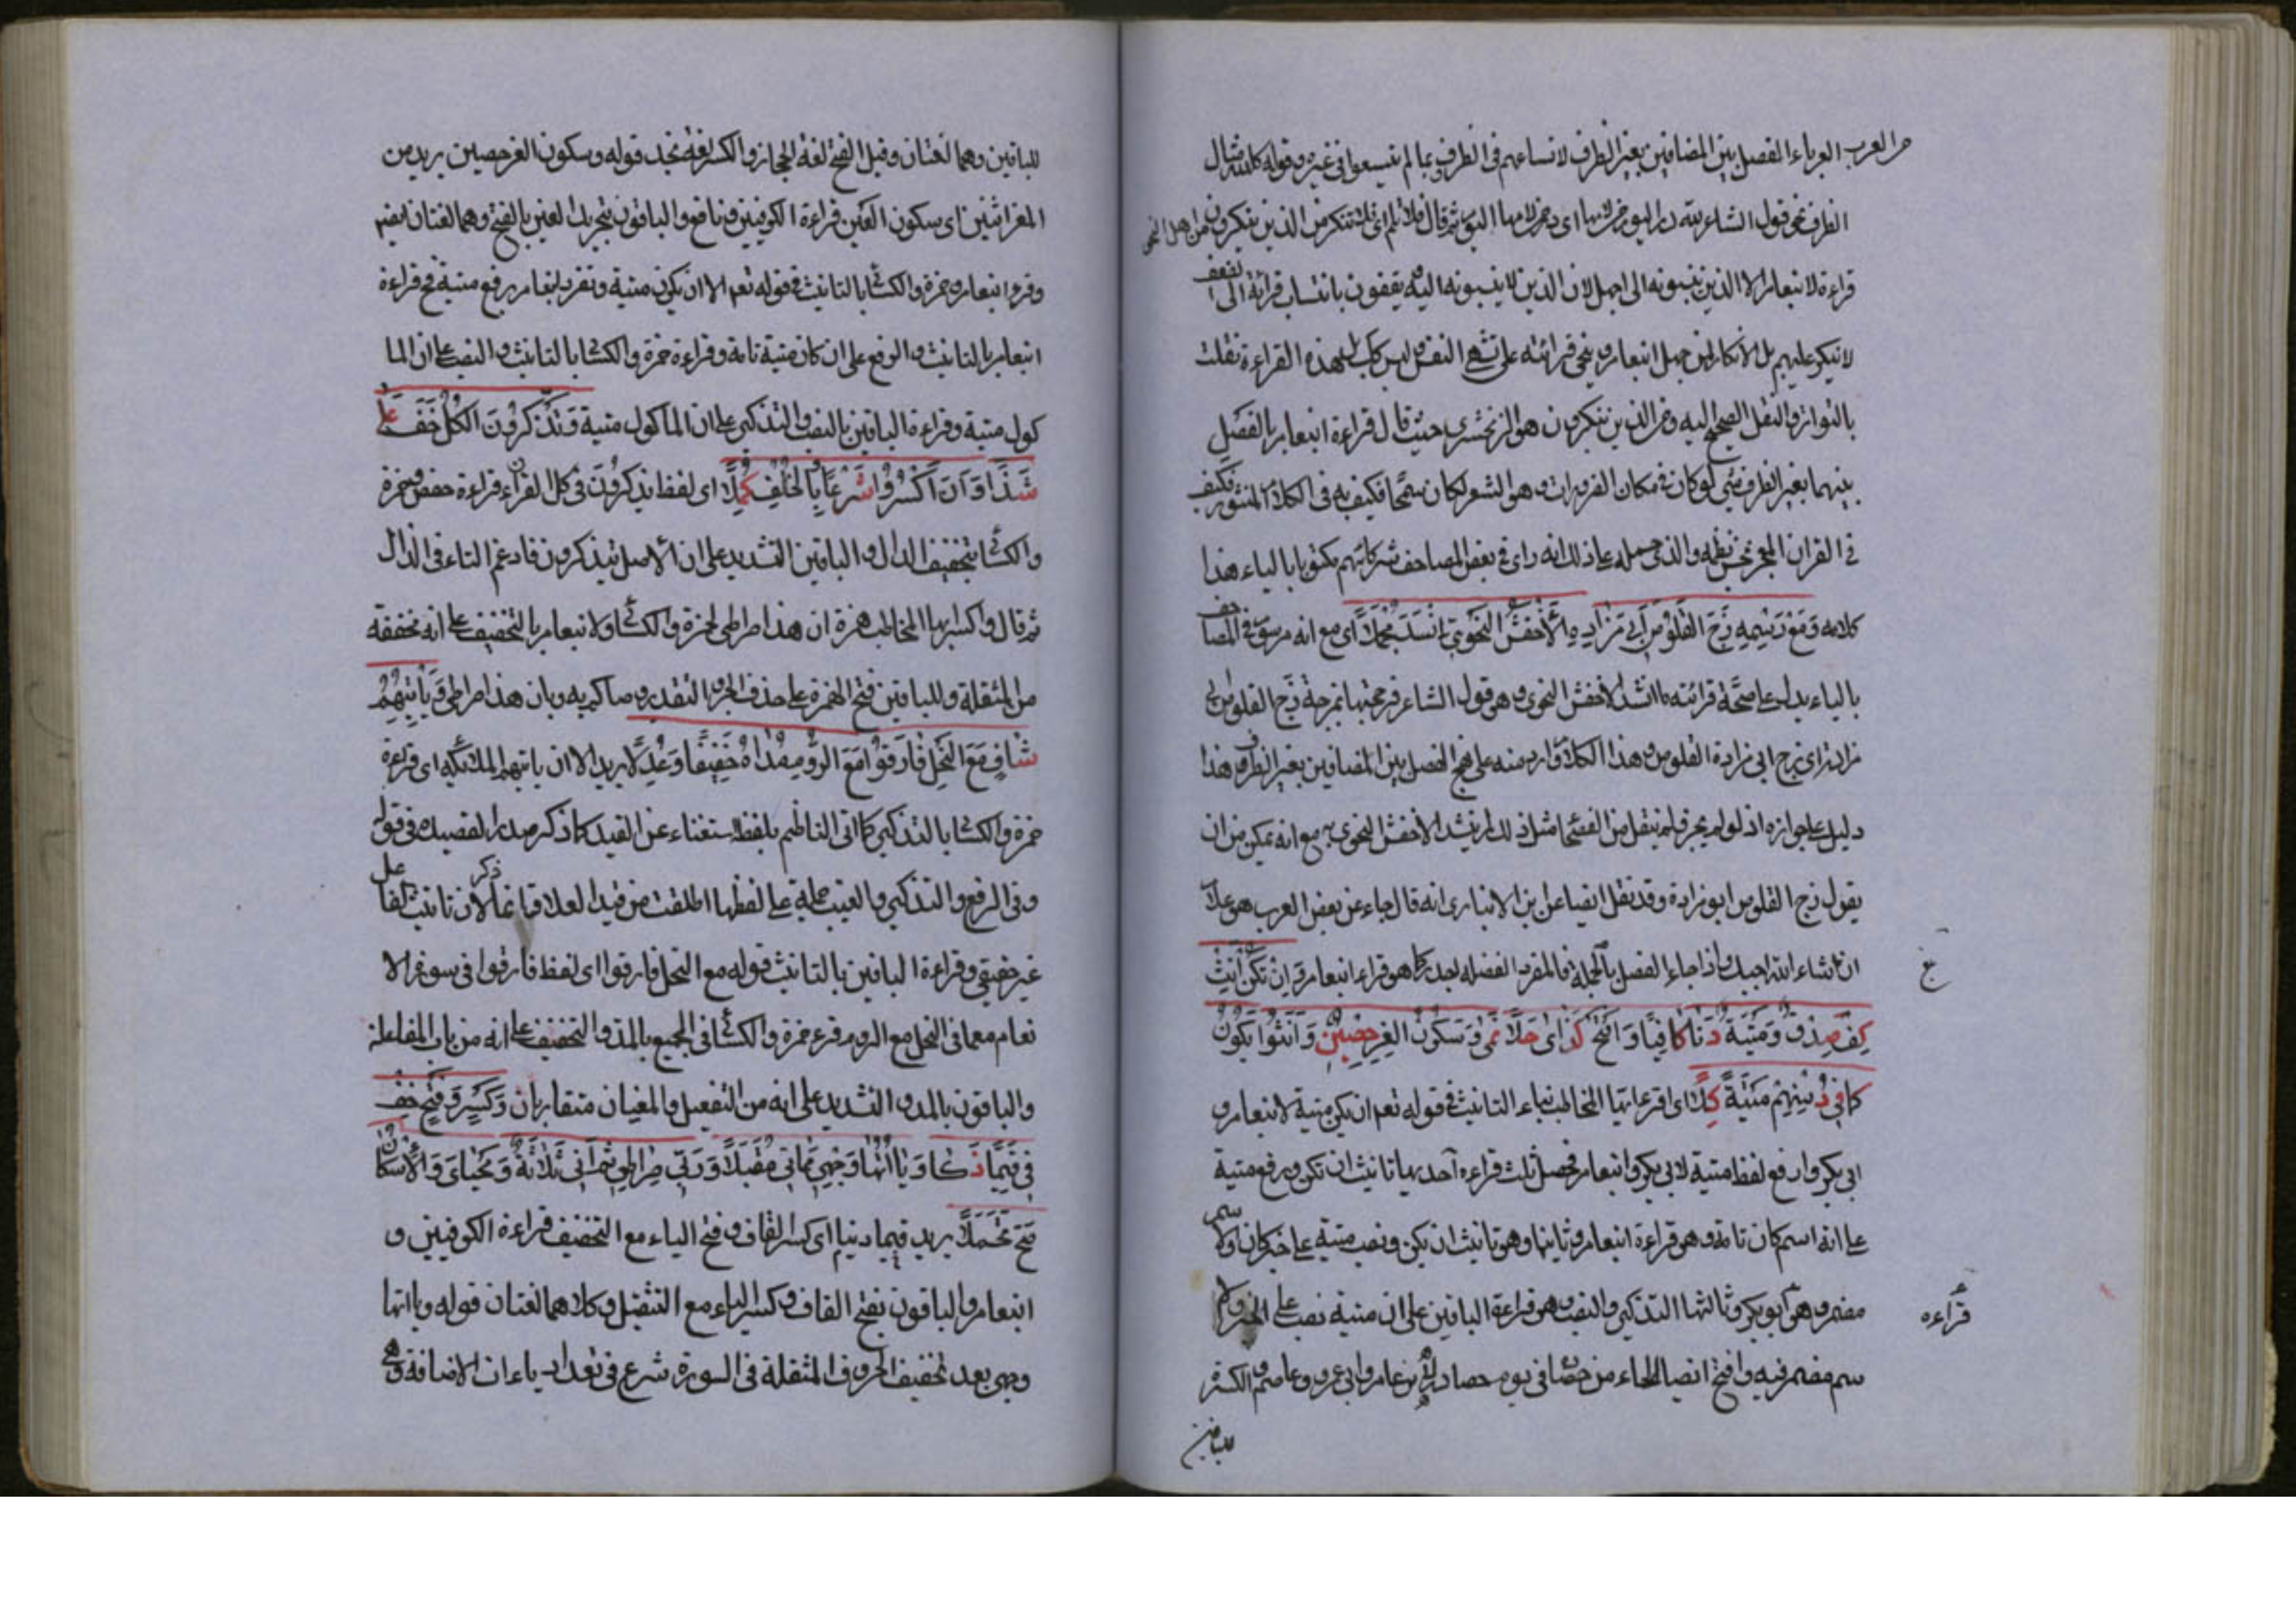 من العرب العرباء الفصل بين المضافين بغير الظرف لاتساعهم في الظرف بما لم يتسعوا في غيره وقوله كلله مثال
الظرف نحو قول الشاعر لله در اليوم من لامها اى در من لامها اليوم ثم قال فلا تلم اى فلا تنكر من الذين ينكرون من اهل النحو
قراءة لابنعامر الا الذين ينسبونه الى الجهل لان الذين لا ينسبونه اليه يقفون بانتساب قرائة الى الضعف
لا ينكر عليهم بل الانكار لمن جهل ابنعامر في قرائته على النقص ليس كل هذه القراءة نقلت
بالتواتر والنقل الصحيح اليه ومن الذين ينكرون هو الزمخشري حيث قال قراءة ابنعامر بالفصل
بينهما بغير الظرف شئ لو كان في مكان الضرورات وهو الشعر لكان سمجا فكيف به في الكلام المنثور فكيف
في القران المعجز بحسن نظمه والذى حمله على ذلك انه راى في بعض المصاحف شركائهم مكتوبا بالياء هذا
كلامه وَمَعْ رَسْمِهِ زَجَّ القَلُوصَ أَبِي مَزَادَةِ الأَخْفَشُ النَّحْوِيُّ أَنْشَدَ مُجْمِلَا اى مع انه مرسوم في المصاحف
بالياء يدل على صحة قرائته ما انشد الاخفش النحوى وهو قول الشاعر فزججتها بمزجة زج القلوص ابى
مزادة اى زج ابى مزادة القلوص وهذا الكلام وارد منه على نهج الفصل بين المضافين بغير الظرف هذا
دليل على جوازه اذ لو لم يجز فلم ينقل من الفصحا مثل ذلك لم ينشد الاخفش النحوى به مع انه يمكن من ان
يقول زج القلوص ابو مزادة وقد نقل ايضا عن بن الانبارى انه قال جاء عن بعض العرب هو غلام
ان شاء الله اخيك واذا جاء الفصل بالجملة فالمفرد الفصل له اجدر كما هو قراءة ابنعامر وَاِنْ تَكُنْ أَنِّثْ
كفؤ صدق وَمَيْتَةٌ دَنَا كَافِيًا وَافْتَحْ حِصَادِ كَذَى حُلَا نَمَى وَسُكُونُ المَعْزِ حِصْنٌ وَأَنَّثُوا يَكُونُ
كَمَا فِي دِينِهِمْ مَيْتَةٌ كَلَا اى اقرء ايها المخاطب بتاء التانيث في قوله تعم ان يكن ميتة لابنعامر و
ابى بكر وارفع لفظ ميتة لابى بكر وابنعامر فحصل ثلث قراءة احديها تانيث ان تكن ورفع ميتة
على انه اسم كان تامة وهو قراءة ابنعامر وثانيها وهو تانيث ان يكن ونصب ميتة على خبر كان والاسم
مضمر وهو ابو بكر وثالثها التذكير والنصب وهو قراءة الباقين على ان ميتة نصب على الخبر والا
سم مضمر فيه وافتح ايضا الحاء من حصاد في يوم حصاده لابن عامر وابى عمرو وعاصم والكسر
للباقين
قراءه
للباقين وهما لغتان وقيل الفتح لغة الحجاز والكسر لغة نجد قوله وسكون المعز حصن يريد من
المعز اثنين اى سكون العين قراءة الكوفيين ونافع والباقون بتحريك العين بالفتح وهما لغتان ايضم
وقرء ابنعامر وحمزة والكسائى بالتانيث في قوله تعم الا ان يكون ميتة وتفرد ابنعامر برفع ميتة فح قراءة
ابنعامر بالتانيث والرفع على ان كان ميتة تامة وقراءة حمزة والكسائى بالتانيث والنصب على ان الما
كول ميتة وقراءة الباقين بالنصب والتذكير على ان الماكول ميتة وَتَذَّكَّرُونَ الكُلُّ خَفَّ عَلَى
شَذًا وَاَنَّ اكْسِرُوا شَرْعًا وَبِالْخُلْفِ كُمِّلَا اى لفظ تذكرون في كل القرآن قراءة حفص وحمزة
والكسائى بتخفيف الذال والباقين التشديد على ان الاصل تتذكرون فادغم التاء في الذال
ثم قال واكسر ايها المخاطب همزة ان هذا صراطى لحمزة والكسائى ولابنعامر بالتخفيف على انه مخففة
من المثقلة وللباقين فتح الهمزة على حذف الجر والتقدير وصاكم به وبان هذا صراطى وَيَأْتِيَهُمْ
شَافٍ مَعَ النَّحْلِ فَارَقُوا مَعَ الرُّومِ مَدَّاهُ خَفِيفًا وَعَدَّلَا يريد الا ان ياتيهم الملائكة اى قراءة
حمزة والكسائى بالتذكير كما اتى الناظم بلفظه استغناء عن القيد كما ذكر صدر القصيده في قوله
وفى الرفع والتذكير والغيب جملة على لفظها اطلقت من قيد العلا فانما ذكر لان تانيث الفاعل
غير حقيقى وقراءة الباقين بالتانيث قوله مع النحل فارقوا اى لفظ فارقوا في سورة الا
نعام معما في النحل مع الروم قرء حمزة والكسائى في الجميع بالمد والتخفيف على انه من باب المفاعلة
والباقون بالمد والتشديد على انه من التفعيل والمغيان متقاربان وَكَسْرٌ وَفَتْحٌ خَفَّ
فِي قِيَمًا ذَكَا وَيَا اٰتُهَا وَجْهِي مَمَاتِي مُقْبِلَا وَرَبِّي صِرَاطِي ثُمَّ إِنِّي ثَلَاثَةٌ وَمَحْيَايَ وَالْإِسْكَانُ
صَحَّ تَحَمُّلَا يريد قيما دينا اى كسر القاف وفتح الياء مع التخفيف قراءة الكوفيين و
ابنعامر والباقون بفتح القاف وكسر الياء مع التثقيل وكلاهما لغتان قوله وياآتها
وجهى بعد تخفيف الحروف المثقلة في السورة شرع في تعداد ياءات الاضافة وهى